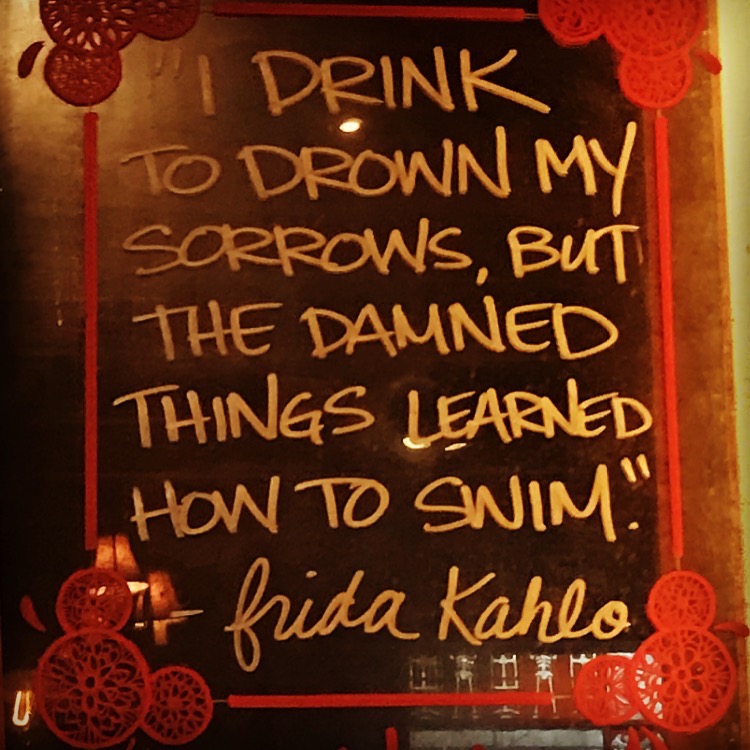 "I DRINK
TO DROWN MY
SORROWS, BUT
THE DAMNED
THINGS LEARNED
HOW TO SWIM."
frida Kahlo
U